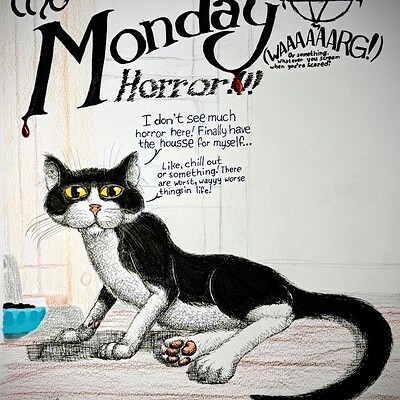 The
Monday
Horror!!!
(WAAAAAARG!)
Or something.
Whatever you scream
when you're scared?
I don't see much
horror here! Finally have
the housse for myself...
Like, chill out
or something! There
are worst, wayyy worse
things in life!